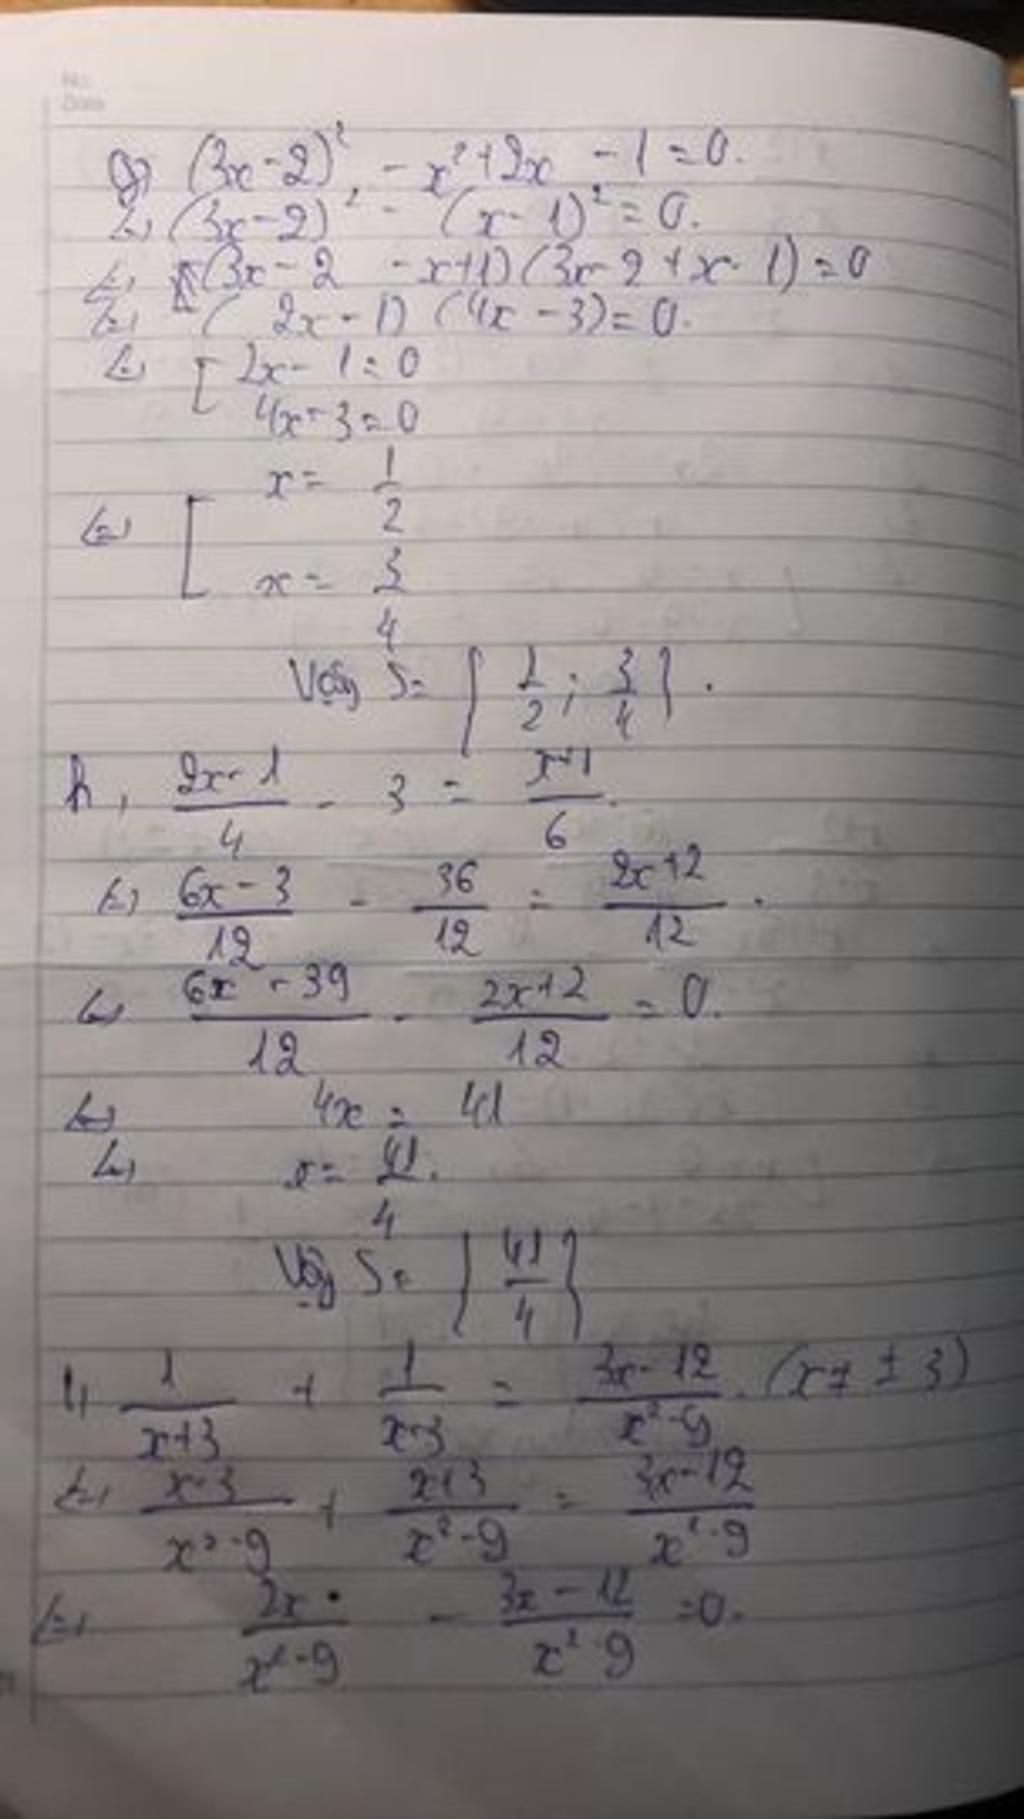 No.
Date
g, (3x-2)² - x² + 2x - 1 = 0.
<=> (3x-2)² - (x-1)² = 0.
<=> (3x-2 - x+1) (3x-2+x-1) = 0
<=> (2x-1) (4x-3) = 0.
<=> [ 2x-1 = 0
4x-3 = 0
<=> [ x = 1/2
x = 3/4
Vậy S = { 1/2 ; 3/4 } .
h, (2x-1)/4 - 3 = (x+1)/6 .
<=> (6x-3)/12 - 36/12 = (2x+2)/12 .
<=> (6x-39)/12 - (2x+2)/12 = 0.
<=> 4x = 41
<=> x = 41/4 .
Vậy S = { 41/4 }
i, 1/(x+3) + 1/(x-3) = (3x-12)/(x²-9) . (x ≠ ±3)
<=> (x-3)/(x²-9) + (x+3)/(x²-9) = (3x-12)/(x²-9)
<=> 2x/(x²-9) - (3x-12)/(x²-9) = 0.